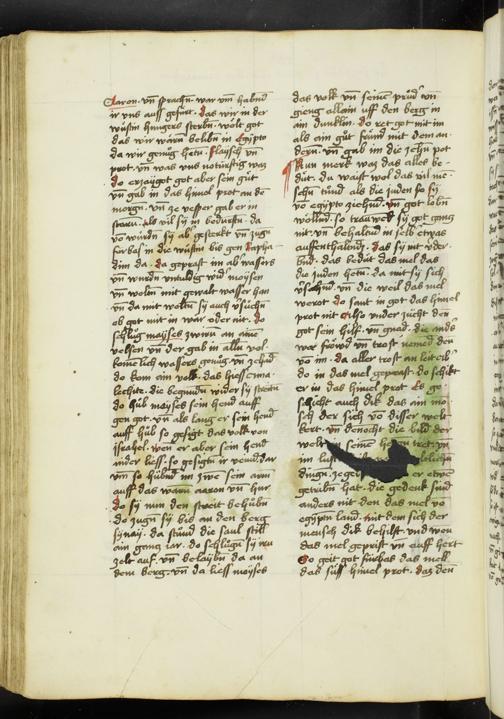 Aaron · vn̄ sprachn̄ · war vm̄ habnd
ir vns auss gefürt · das wir in der
wüstin hungers sterbn · wolt got
das wir warn belibn in Egipto
da wir genug hetn · flaisch vn̄
prot · vn̄ was vns notürftig was
do erzaÿgot got aber sein güt
vn̄ gab in das himel prot an dē
morgn · vn̄ ze vesper gab er in
als vil sÿ in bedurftn · da
vō wurdn sÿ ab gesterkt vn̄ zugn
fürbas in die wüstin bis gen Rapha
dim da · da geprast im ab wassers
vn̄ wurdn vntuldig wid moÿsen
vn̄ woltn mit gewalt wasser han
vn̄ da mit woltn sÿ auch v̓suchn̄
ob got mit in war oder nit · do
schlug maÿses zwirn an aine
velsen vn̄ der gab in alln vol
komelich wassers genug vn̄ zehūd
do kom ain volk · das hiess ama
lechite · die begundn wider sÿ streitn
do hub moÿses sein hend auff
gen got · vn̄ als lang er sein hend
auff hub so gesigt das volk von
israhel · wen er aber sein hend
nider liess · so gesigtn ir veind · dar
vm̄ so hubnd im zwe sein arm
auff das warn aaron vn̄ hur
do sÿ nun den streit behübn
do zugn sÿ bis an den berg
sÿnaÿ · da stund die saul still
ain gantz iar · do schlugn sÿ ire
zelt auf · vn̄ belibn da an
dem berg · vn̄ da liess moÿses
das volk vn̄ seinē prüd̓ vn̄
gieng allain uff den berg in
ain dunklin · do ret got mit im
als ain gut fründ mit dem an ·
dern · vn̄ gab im die zehn pot
Nun merk was das alles be ·
düt · da waist wol das vil me
schn̄ tünd als die juden so sÿ
vō egipto ziehnd · vn̄ got lobn
wollnd · so trawend sÿ got gantz
nit · vn̄ behaltnd in selb etwas
auffenthaltnd · das sÿ nit v̓der
bnd · das bedüt das mel das
die juden hetn · da mit sÿ sich
vn̄ die weil das mel
werot do sant in got das himel
prot nit · also under zücht den
got sein hilf · vn̄ gnad · die ands
war fröwd vn̄ trost nemēd den
vō im · da aller trost an leit eib̓
do in das mel geprast · do schikt
er in das himel prot · Es ge
schicht auch dik das ain mē
sch der sich vō disser welt
kert · vn̄ dennocht die bild der
welt in seinē hertzn
im lust
dingn · er etwen
getribn hat · die gedenk sind
anders nit den das mel vō
egiptn land · mit dem sich der
mensch dik behilft · vnd wen
das mel geprist vn̄ auff hert
So geit got fürbas das mel
das süss himel prot · das den